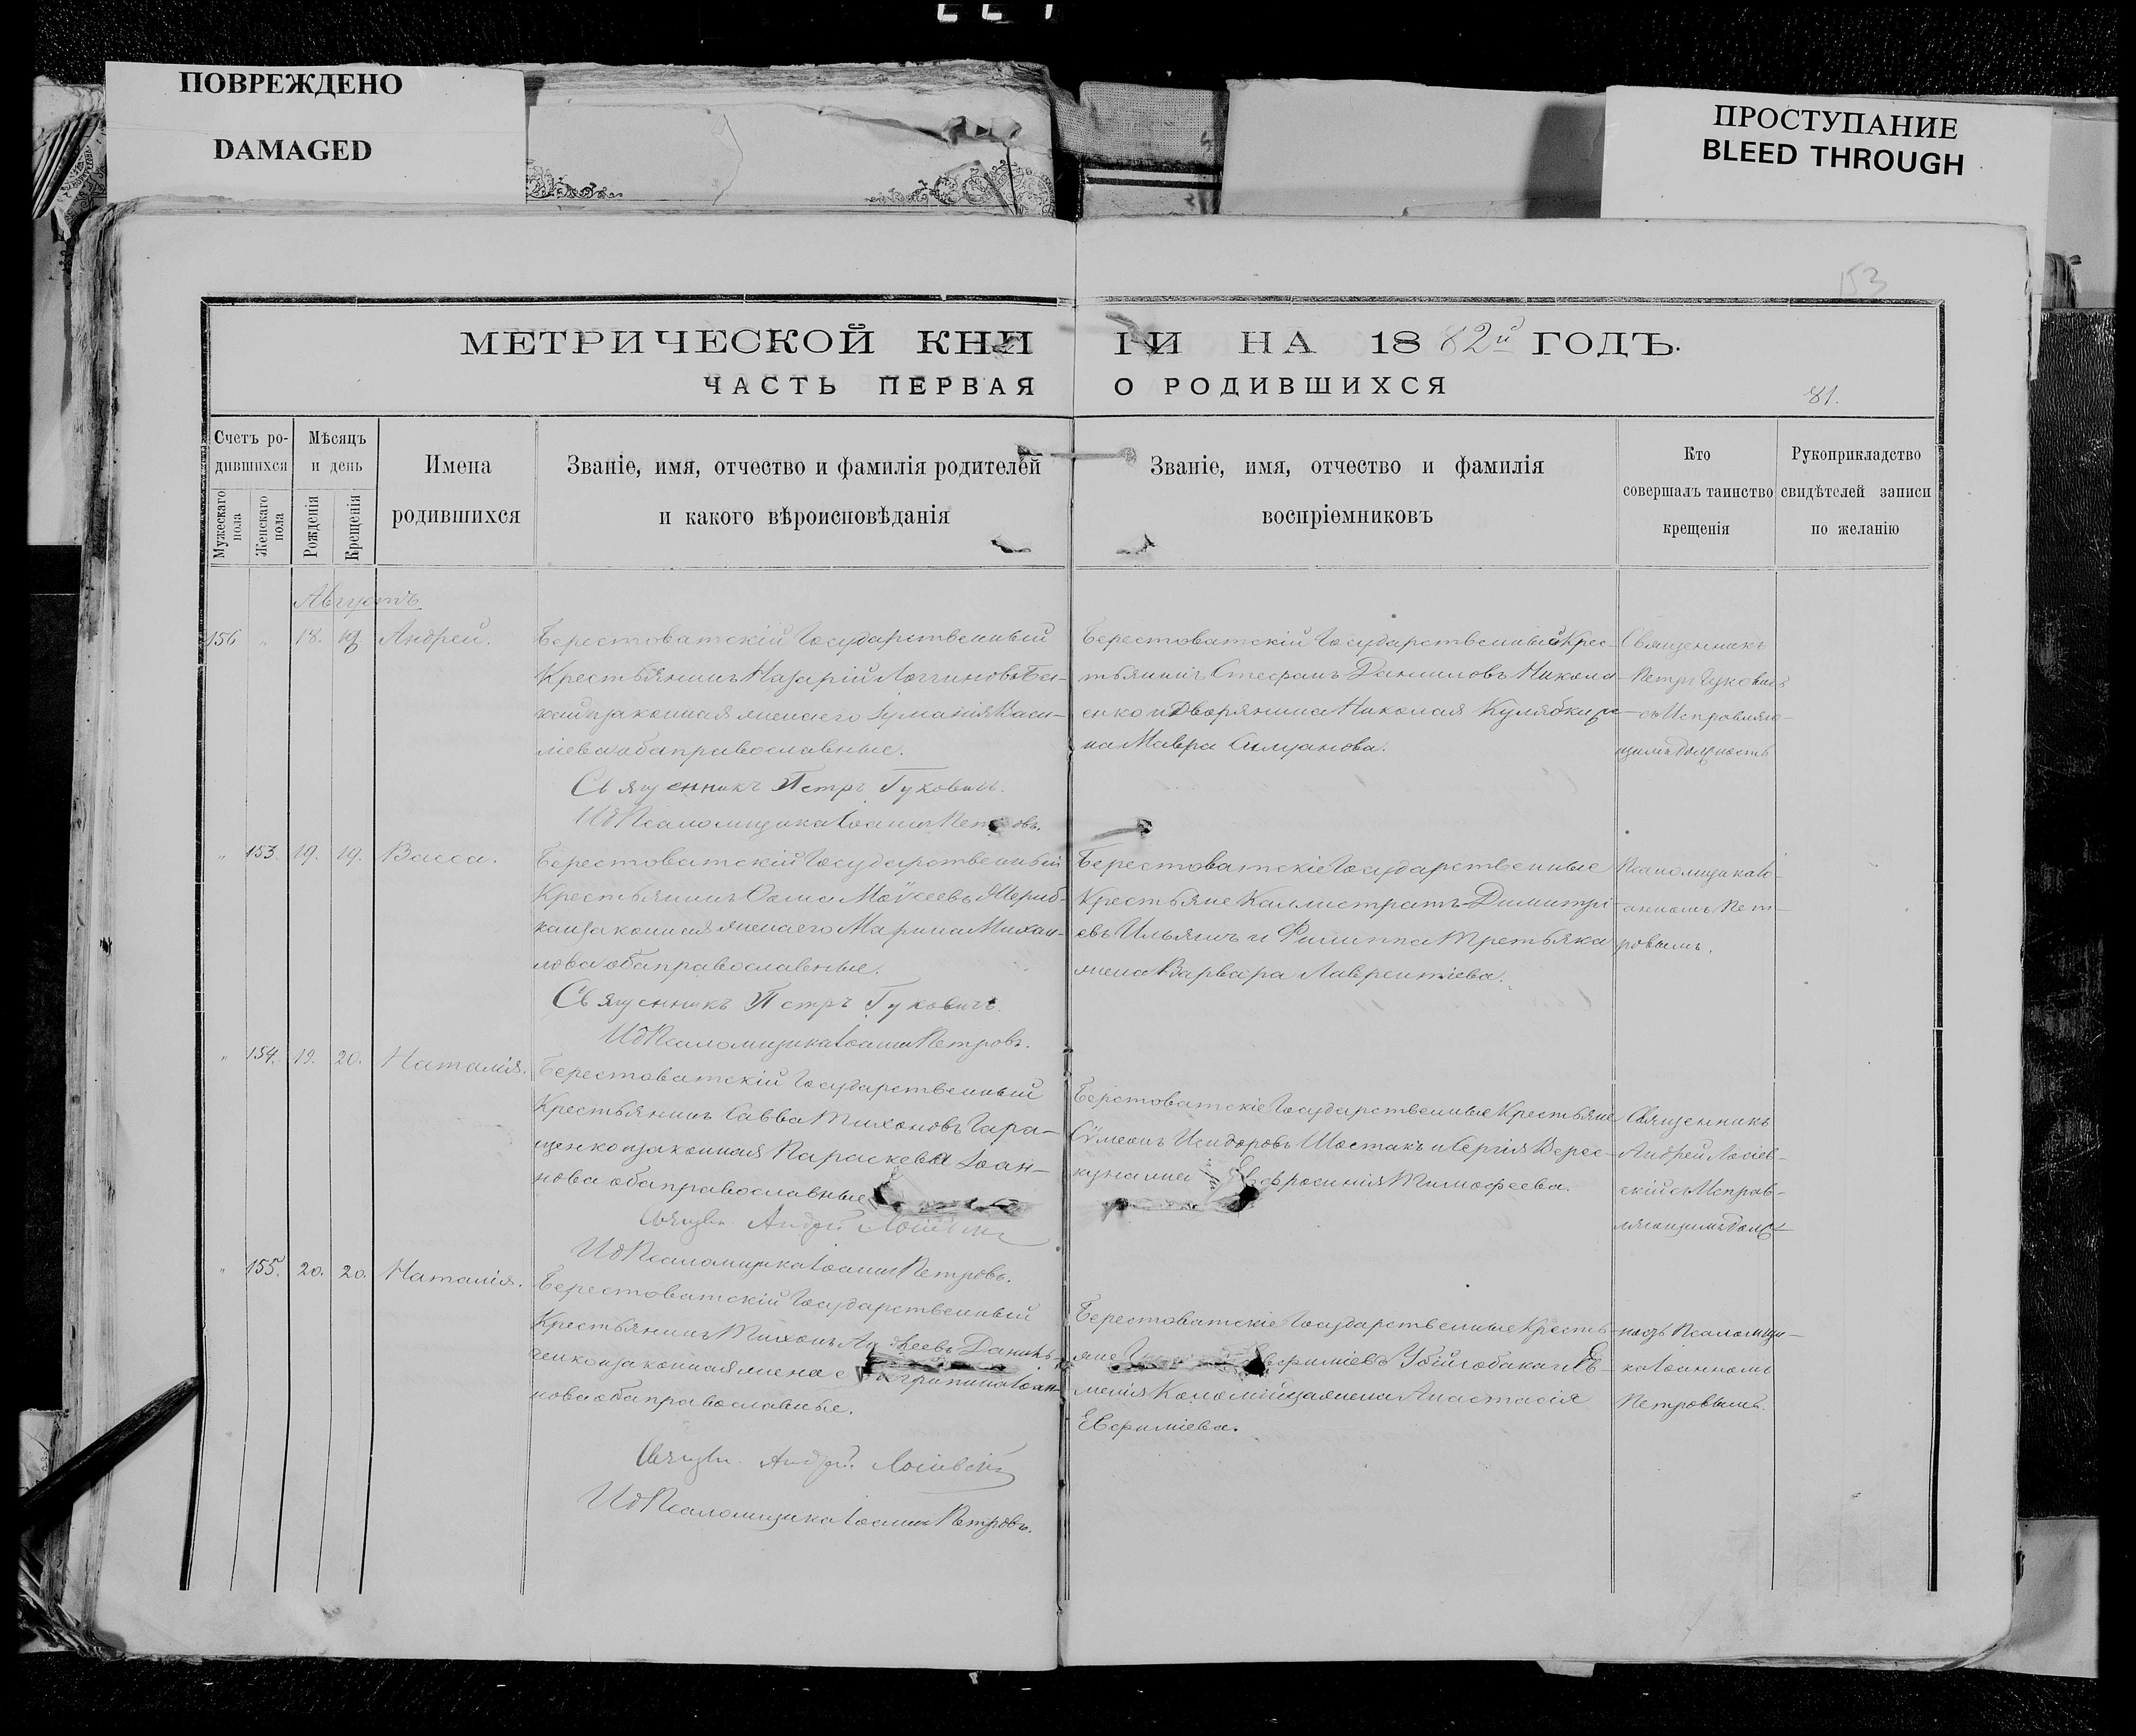 ПОВРЕЖДЕНО
DAMAGED
ПРОСТУПАНИЕ
BLEED THROUGH
153
МЕТРИЧЕСКОЙ КНИГИ НА 1882й ГОДЪ.
ЧАСТЬ ПЕРВАЯ О РОДИВШИХСЯ
81.
Счетъ ро-
дившихся
Мужескаго пола
Женскаго пола
Мѣсяцъ
и день
Рожденія
Крещенія
Имена
родившихся
Званіе, имя, отчество и фамилія родителей
и какого вѣроисповѣданія
Званіе, имя, отчество и фамилія
воспріемниковъ
Кто
совершалъ таинство
крещенія
Рукоприкладство
свидѣтелей записи
по желанію
Августъ
156 " 18. 19. Андрей.
Берестоватскій Государственный
Крестьянинъ Назарій Логгиновъ
законная жена его Васи-
лева оба православные.
Священникъ Петръ Гуковичъ.
Ид Псаломщика Іоаннъ Петровъ.
Берестоватскій Государственный Крес-
тьянинъ Стефанъ Даниловъ Никола-
енко и Дворянина Николая
Мавра Силуанова.
Священникъ
Петръ Гуковичъ
съ Исправляю-
щимъ Должность
" 153. 19. 19. Васса.
Берестоватскій Государственный
Крестьянинъ Ѳома Моѵсеевъ
законная жена его Марина Михаи-
лова оба православные.
Священникъ Петръ Гуковичъ.
Ид Псаломщика Іоаннъ Петровъ.
Берестоватскіе Государственные
Крестьяне Каллистратъ Димитрі-
евъ Ильяшъ и Филиппа Третьяка
жена Варвара Лаврентіева.
Псаломщика Іо-
анномъ Пет-
ровымъ.
" 154. 19. 20. Наталія.
Берестоватскій Государственный
Крестьянинъ Савва Тихоновъ Гара-
щенко и законная Параскева Іоан-
нова оба православные
Священ. Андрей Лосіевскій
Ид Псаломщика Іоаннъ Петровъ.
Берестоватскіе Государственные Крестьяне
Сѵмеонъ Исидоровъ Шостакъ и Сергія Верес-
Евфросинія Тимофеева.
Священникъ
Андрей Лосіев-
скій съ Исправ-
ляющимъ Долж-
" 155. 20. 20. Наталія.
Берестоватскій Государственный
Крестьянинъ Тихонъ Данил-
ченко и законная жена
Іоан-
нова оба православные.
Священ. Андрей Лосіевскій
Ид Псаломщика Іоаннъ Петровъ.
Берестоватскіе Государственные Кресть-
яне Евфиміевъ Убійсобака и Ев-
менія Коломійца жена Анастасія
Евфиміева.
ность Псаломщи-
ка Іоанномъ
Петровымъ.